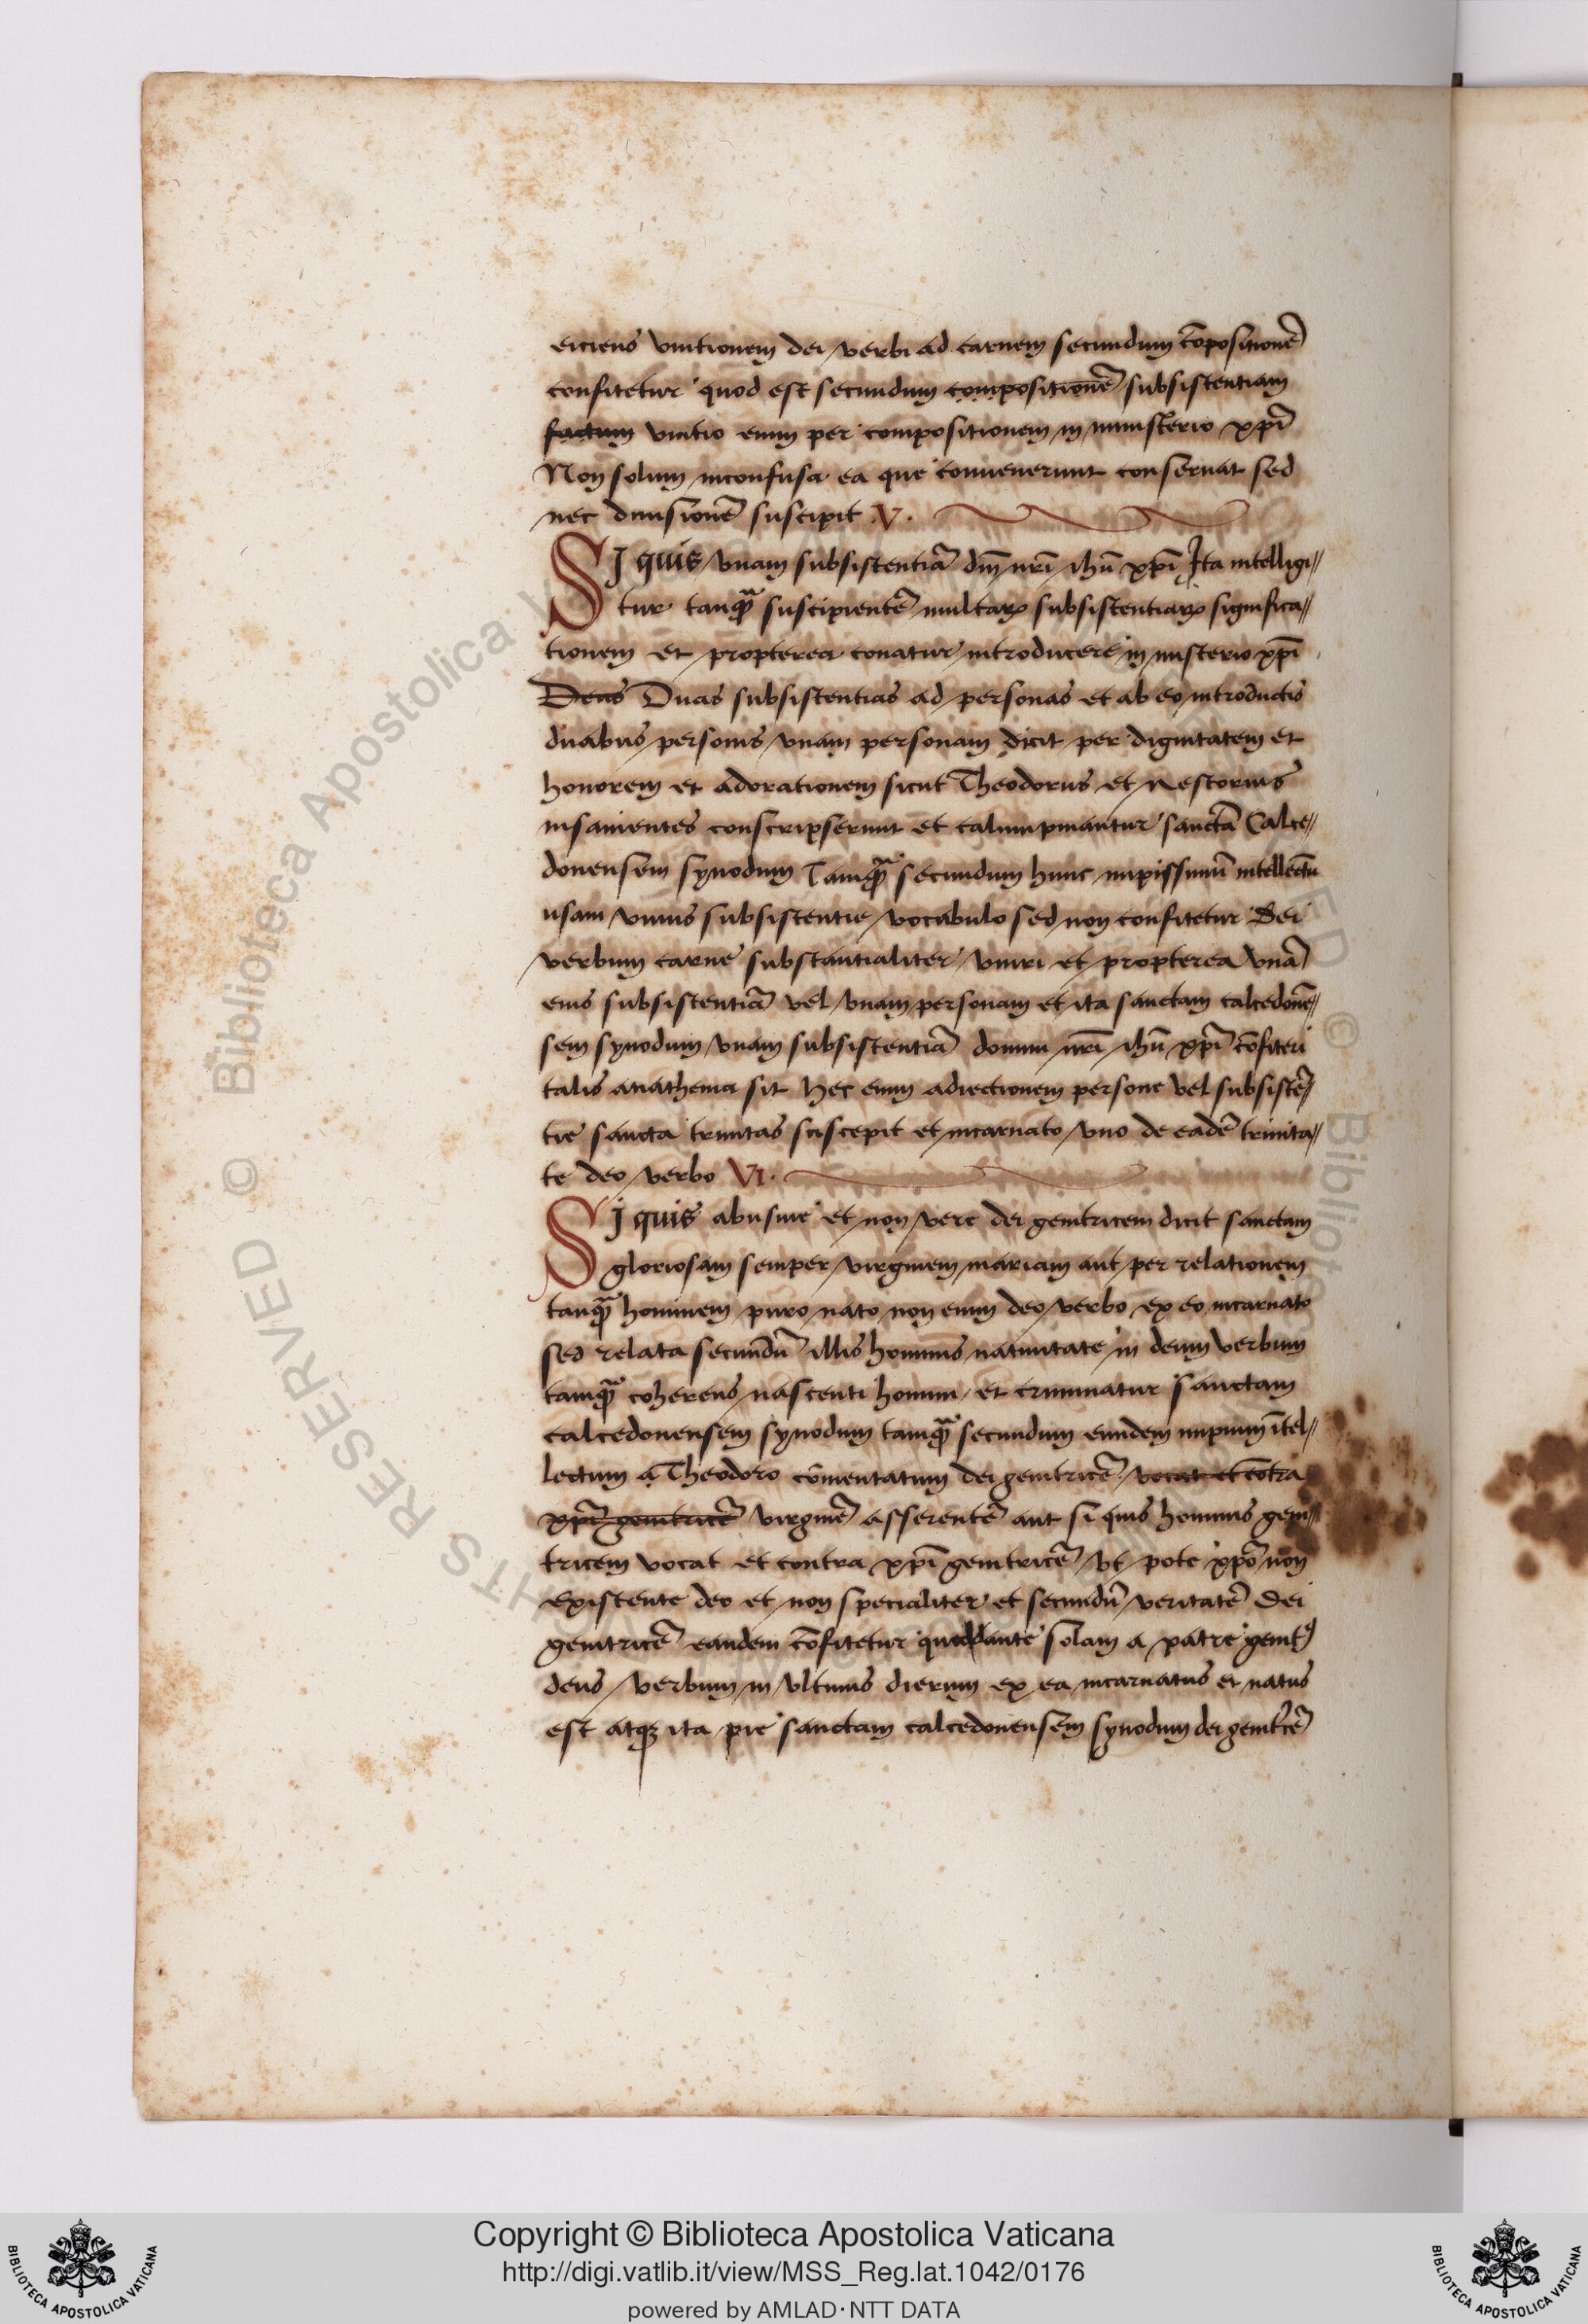 eiciens vnitionem dei verbi ad carnem secundum cōpositionē
confitetur quod est secundum compositionē subsistentiam
factum vnitio enim per compositionem in ministerio xp̄i
Non solum inconfusa ea que conuenerunt conseruat sed
nec diuisionē suscipit .V.
SI quis vnam subsistentiā dn̄i nr̄i ihū xp̄i Ita intelligi//
tur tanq̄ᵃ suscipientē multaꝝ subsistentiaꝝ significa//
tionem et propterea conatur introducere in misterio xp̄i
Deas Duas subsistentias ad personas et ab eo introductis
duabus personis vnam personam dicit per dignitatem et
honorem et adorationem sicut Theodorus et Nestorius
insanientes conscripserunt et calumpniantur sanctā Calce//
donensem synodum Tamq̄ᵃ secundum hunc impissimū intellectū
usam vnius subsistentie vocabulo sed non confitetur Dei
verbum carne substantialiter vniri et propterea vnā
eius subsistentiā vel vnam personam et ita sanctam calcedonē//
sem synodum vnam subsistentiā domini nr̄i ihū xp̄i cōfiteri
talis anathema sit hec enim adiectionem persone vel subsistē//
tie sancta trinitas suscepit et incarnato vno de eadē trinita//
te deo verbo VI.
SI quis abusiue et non vere dei genitricem dicit sanctam
gloriosam semper virginem mariam aut per relationem
tanq̄ᵃ hominem puro nato non enim deo verbo ex eo incarnato
sed relata secundū illis hominis natiuitate in deum verbum
tamq̄ᵃ coherens nascenti homini et criminatur sanctam
calcedonensem synodum tamq̄ᵃ secundum eundem impium ītel//
lectum a Theodoro cōmentatum dei genitricē vocat et cōtra
xp̄i genitricē virginē asserentē aut si quis hominis geni//
tricem vocat et contra xp̄i genitricē vt pote xp̄o non
existente deo et non specialiter et secundū veritatē Dei
genitricē eandem cōfitetur ante solam a patre genitꝰ
deus verbum in vltimis dierum ex ea incarnatus et natus
est atqꝫ ita pie sanctam calcedonensem synodum dei genitⁱcē
Copyright © Biblioteca Apostolica Vaticana
http://digi.vatlib.it/view/MSS_Reg.lat.1042/0176
powered by AMLAD·NTT DATA